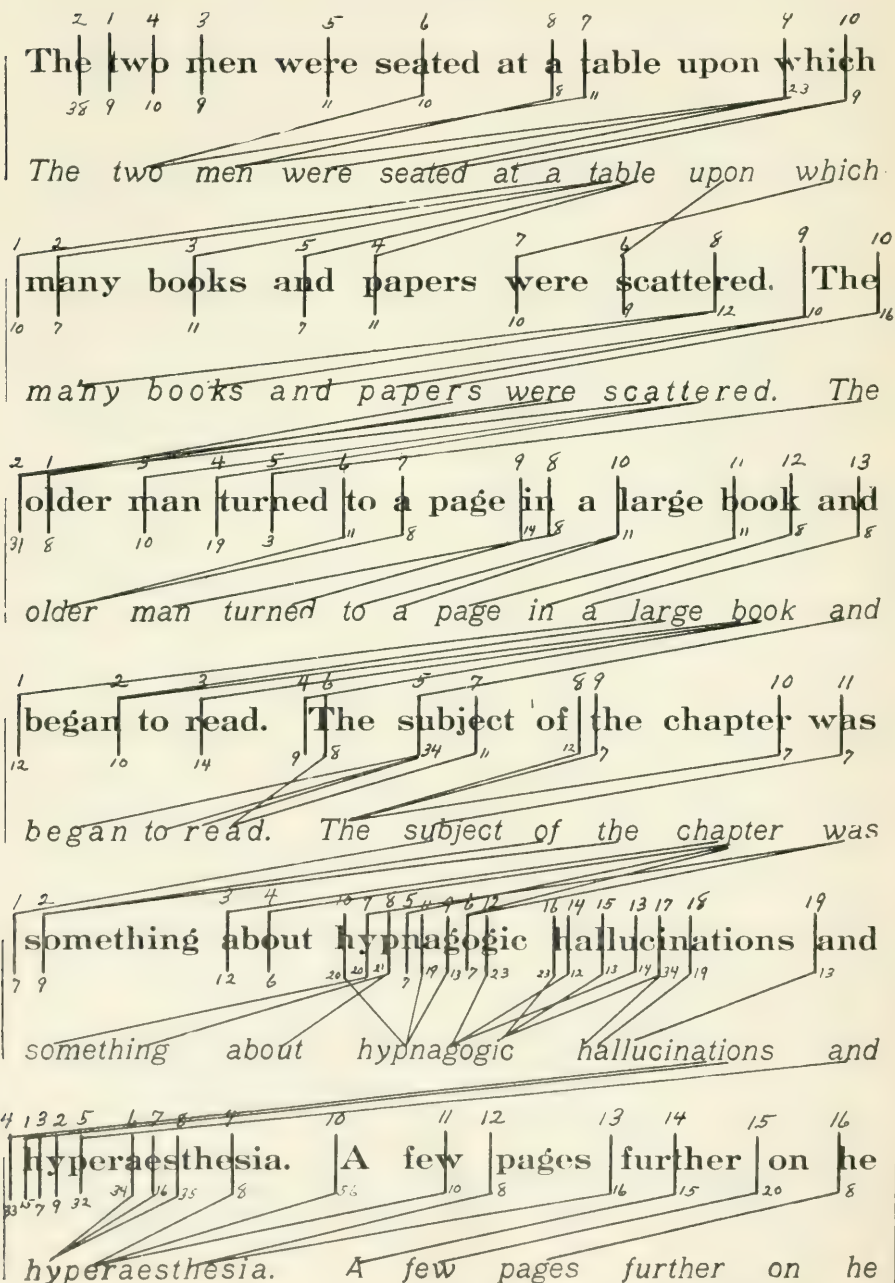 2 1 3 5 6 8 7 4 10
The two men were seated at a table upon which
38 9 10 9 11 10 8 11 23 9
The two men were seated at a table upon which
1 2 3 5 4 7 6 8 9 10
many books and papers were scattered. The
10 7 11 7 11 10 9 12 10 16
many books and papers were scattered. The
2 1 3 4 5 6 7 9 8 10 11 12 13
older man turned to a page in a large book and
31 8 10 19 3 11 8 14 8 11 11 8 8
older man turned to a page in a large book and
1 2 3 4 6 5 7 8 9 10 11
began to read. The subject of the chapter was
12 10 14 9 8 34 11 12 7 7 7
began to read. The subject of the chapter was
1 2 3 4 10 7 8 5 11 9 6 12 16 14 15 13 17 18 19
something about hypnagogic hallucinations and
7 9 12 6 20 20 21 7 19 13 7 23 23 12 13 14 34 19 13
something about hypnagogic hallucinations and
4 1 3 2 5 6 7 8 9 10 11 12 13 14 15 16
hyperaesthesia. A few pages further on he
33 15 7 9 32 34 16 35 8 56 10 8 16 15 20 8
hyperaesthesia. A few pages further on he